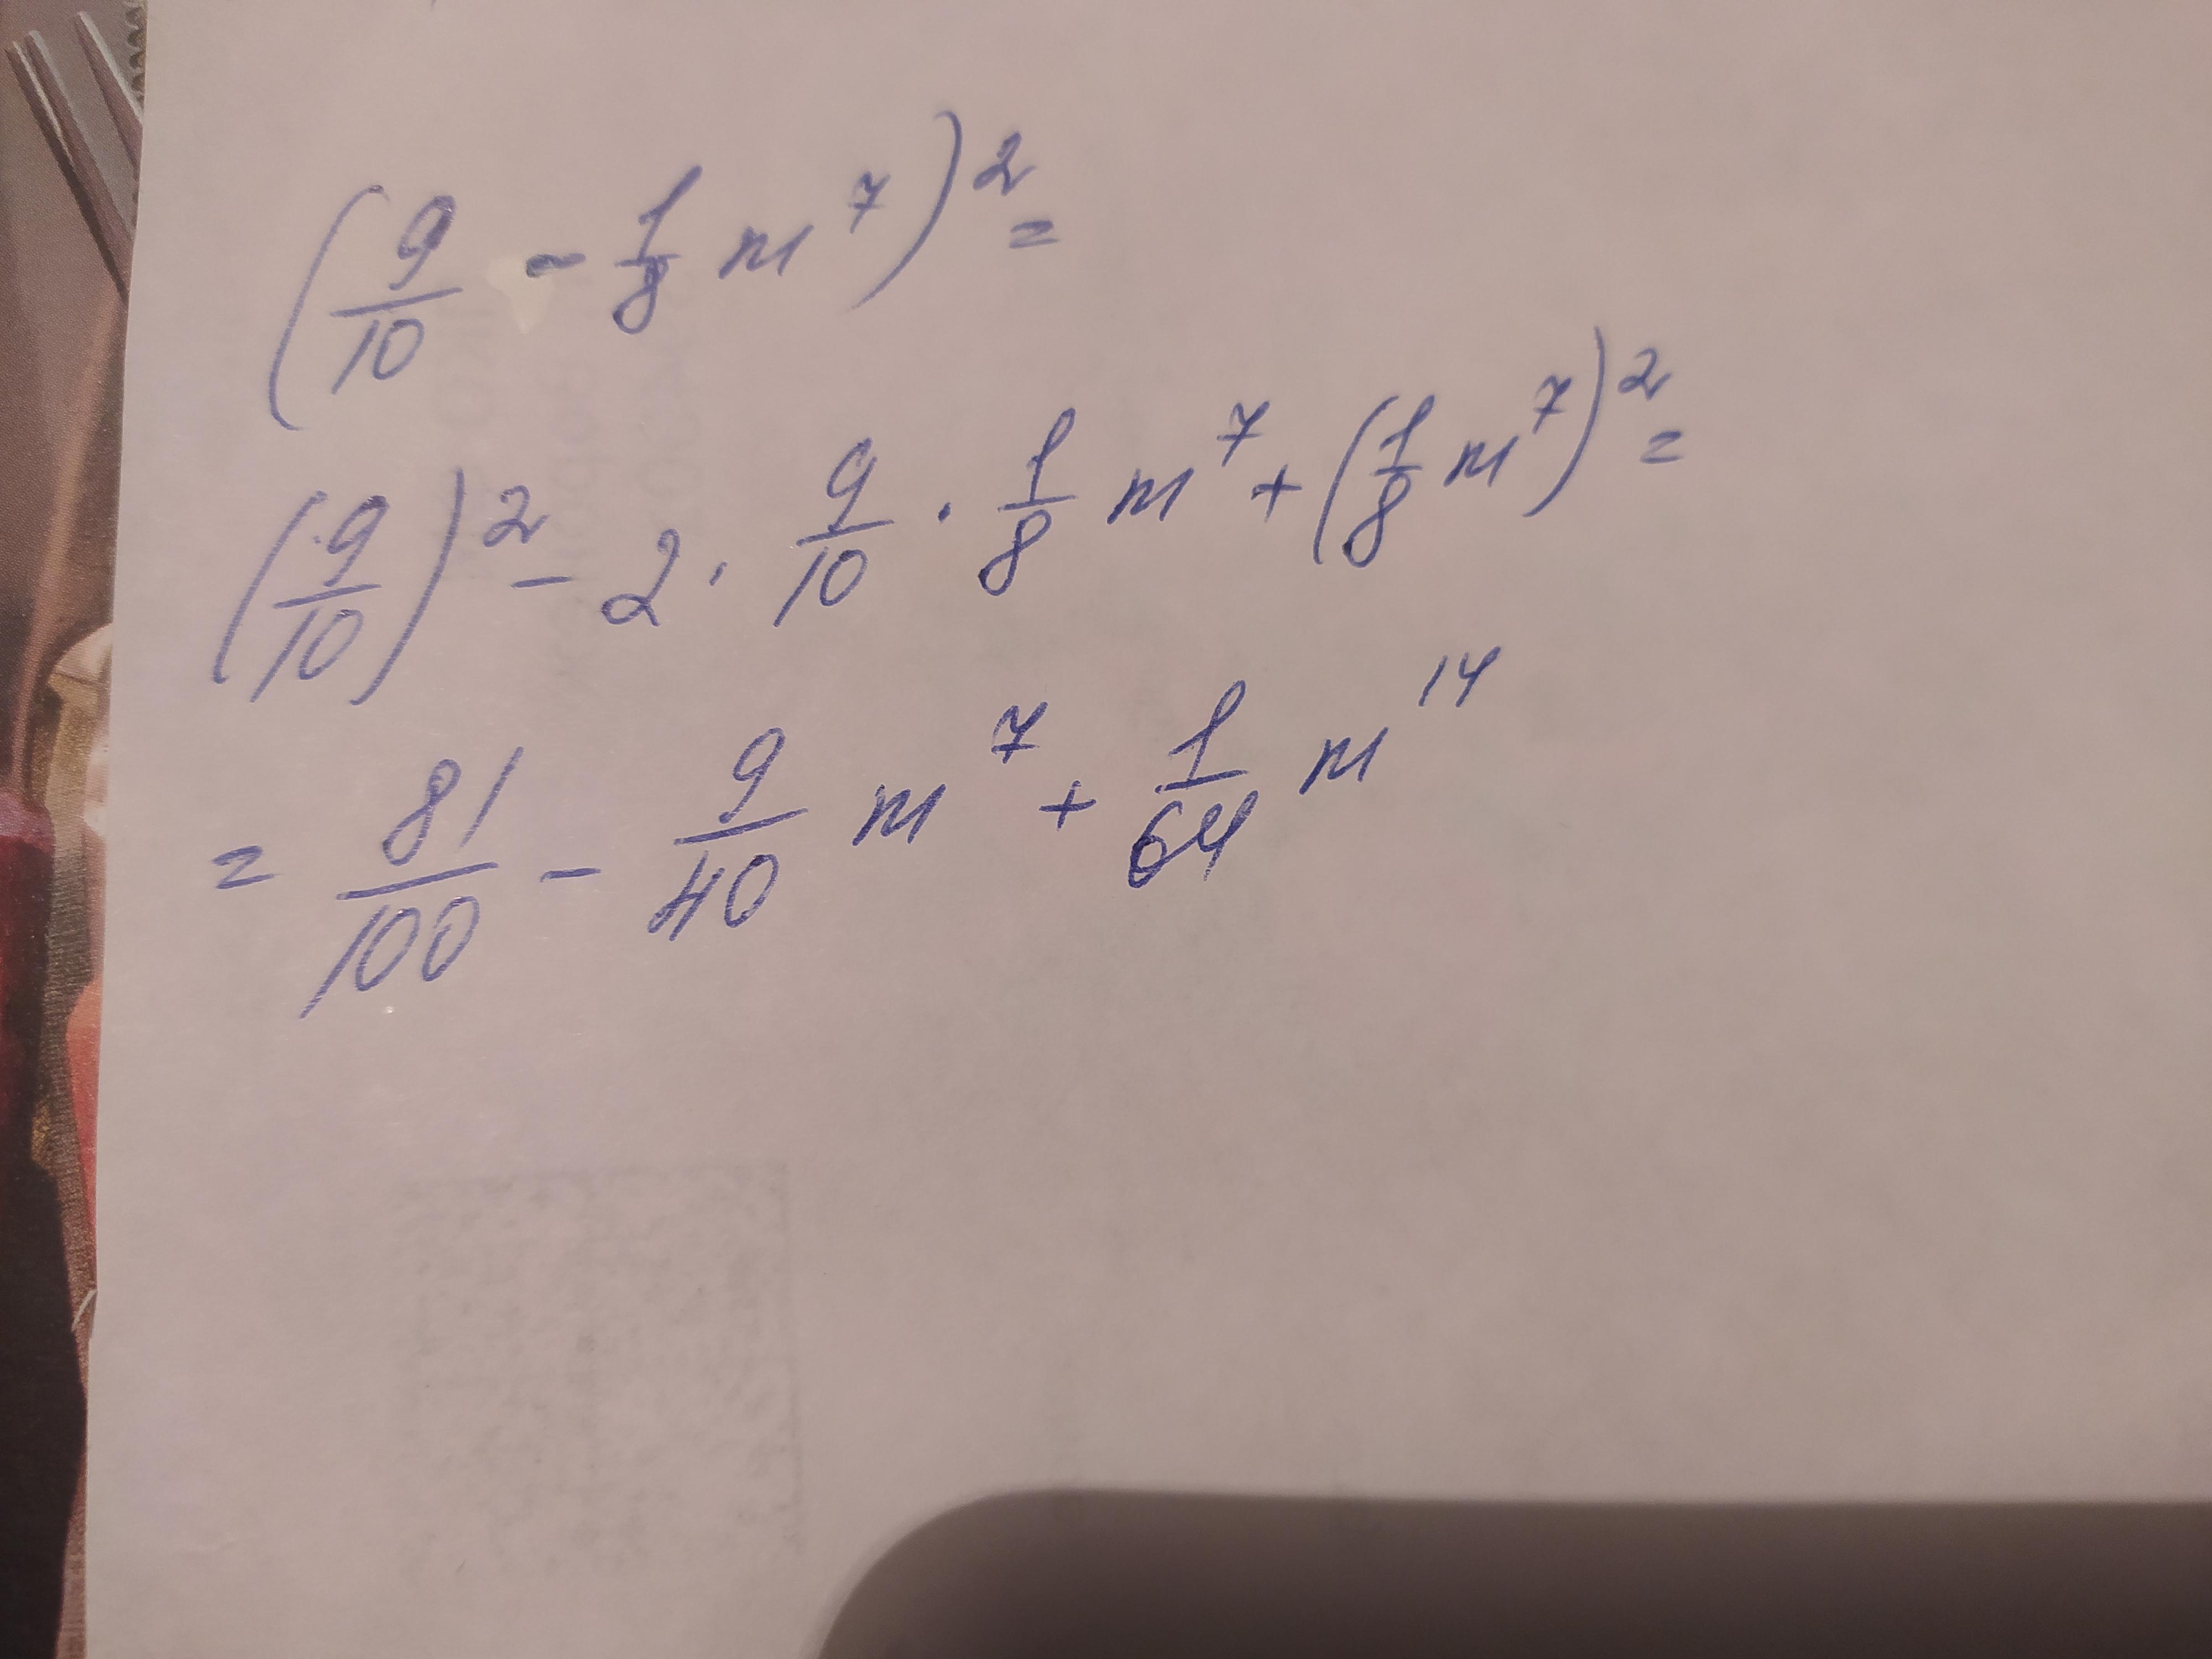 (9/10 - 1/8 m^7)^2 =
(9/10)^2 - 2 · 9/10 · 1/8 m^7 + (1/8 m^7)^2 =
= 81/100 - 9/40 m^7 + 1/64 m^14